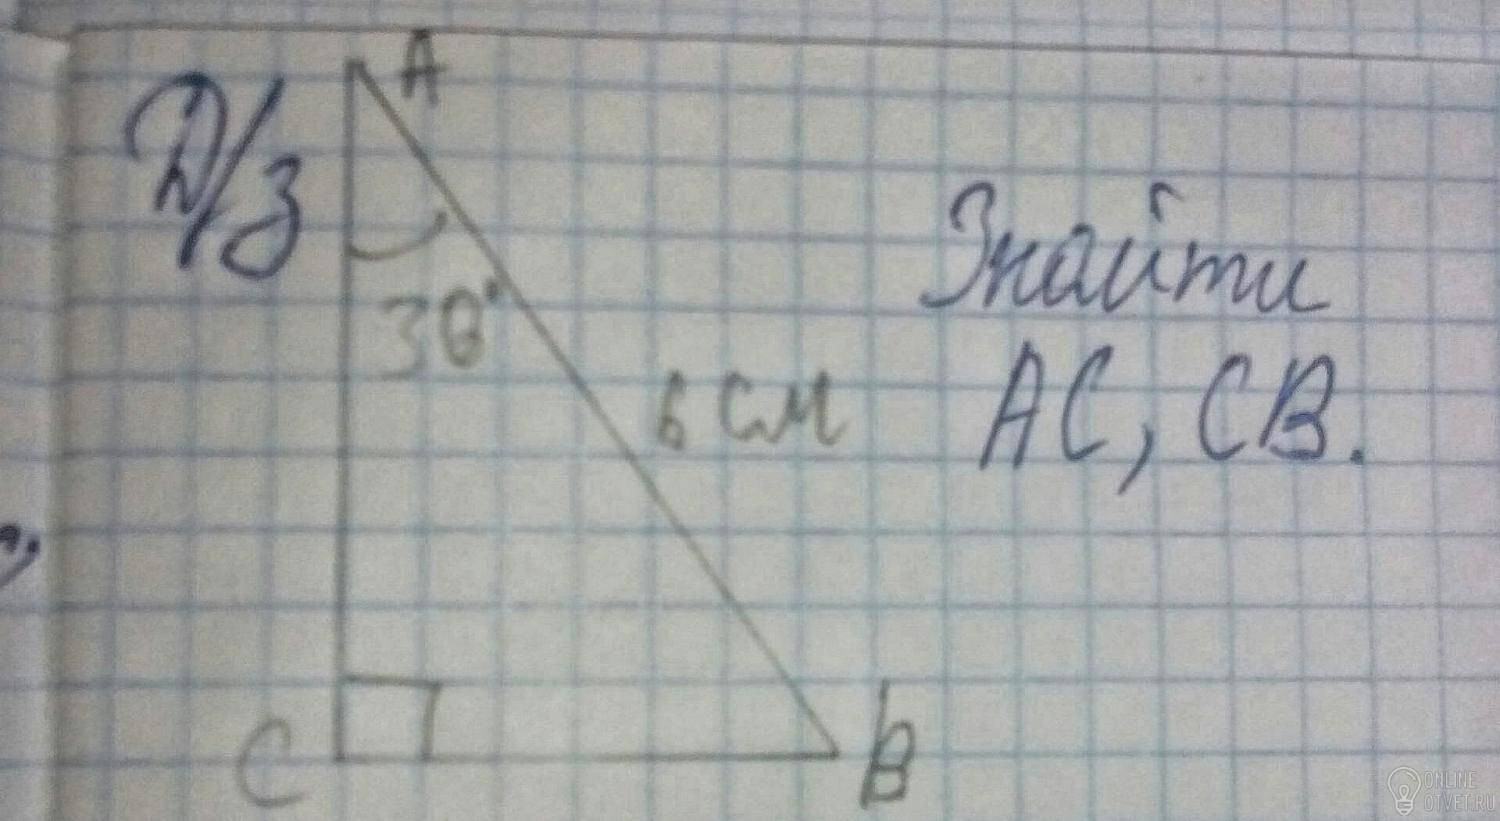 A
Д/з
30°
Знайти
6 см
AC, CB.
C
B
ONLINE
OTVET.RU